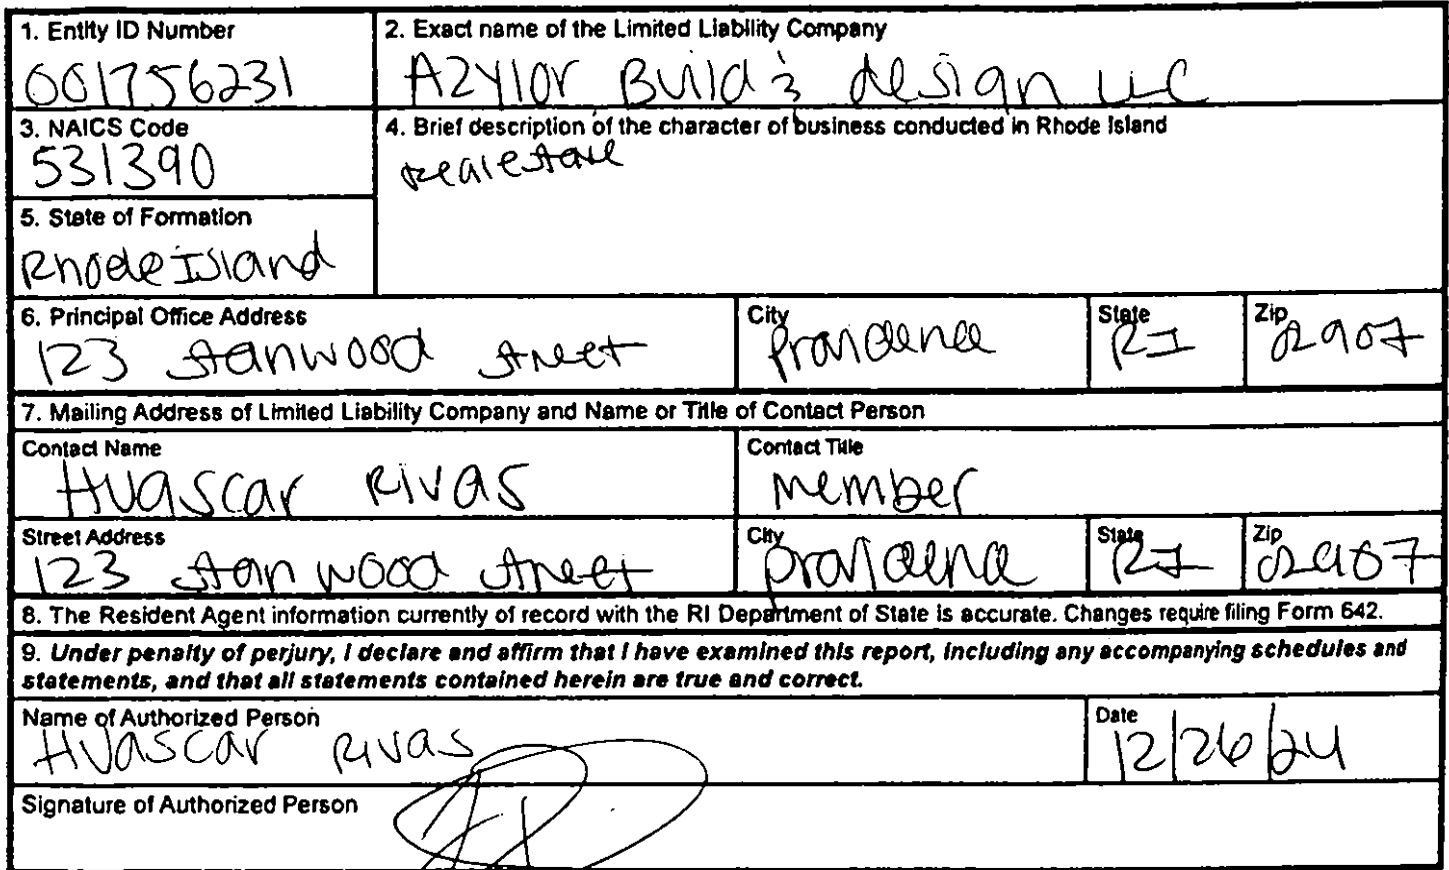 1. Entity ID Number
001756231
2. Exact name of the Limited Liability Company
AZYlor Build & design LLC
3. NAICS Code
531390
4. Brief description of the character of business conducted in Rhode Island
Realestate
5. State of Formation
Rhode Island
6. Principal Office Address
123 Stanwood Street
City
Providence
State
RI
Zip
02907
7. Mailing Address of Limited Liability Company and Name or Title of Contact Person
Contact Name
Huascar Rivas
Contact Title
Member
Street Address
123 Stanwood Street
City
Providence
State
RI
Zip
02907
8. The Resident Agent information currently of record with the RI Department of State is accurate. Changes require filing Form 642.
9. Under penalty of perjury, I declare and affirm that I have examined this report, including any accompanying schedules and
statements, and that all statements contained herein are true and correct.
Name of Authorized Person
Huascar Rivas
Date
12/26/24
Signature of Authorized Person